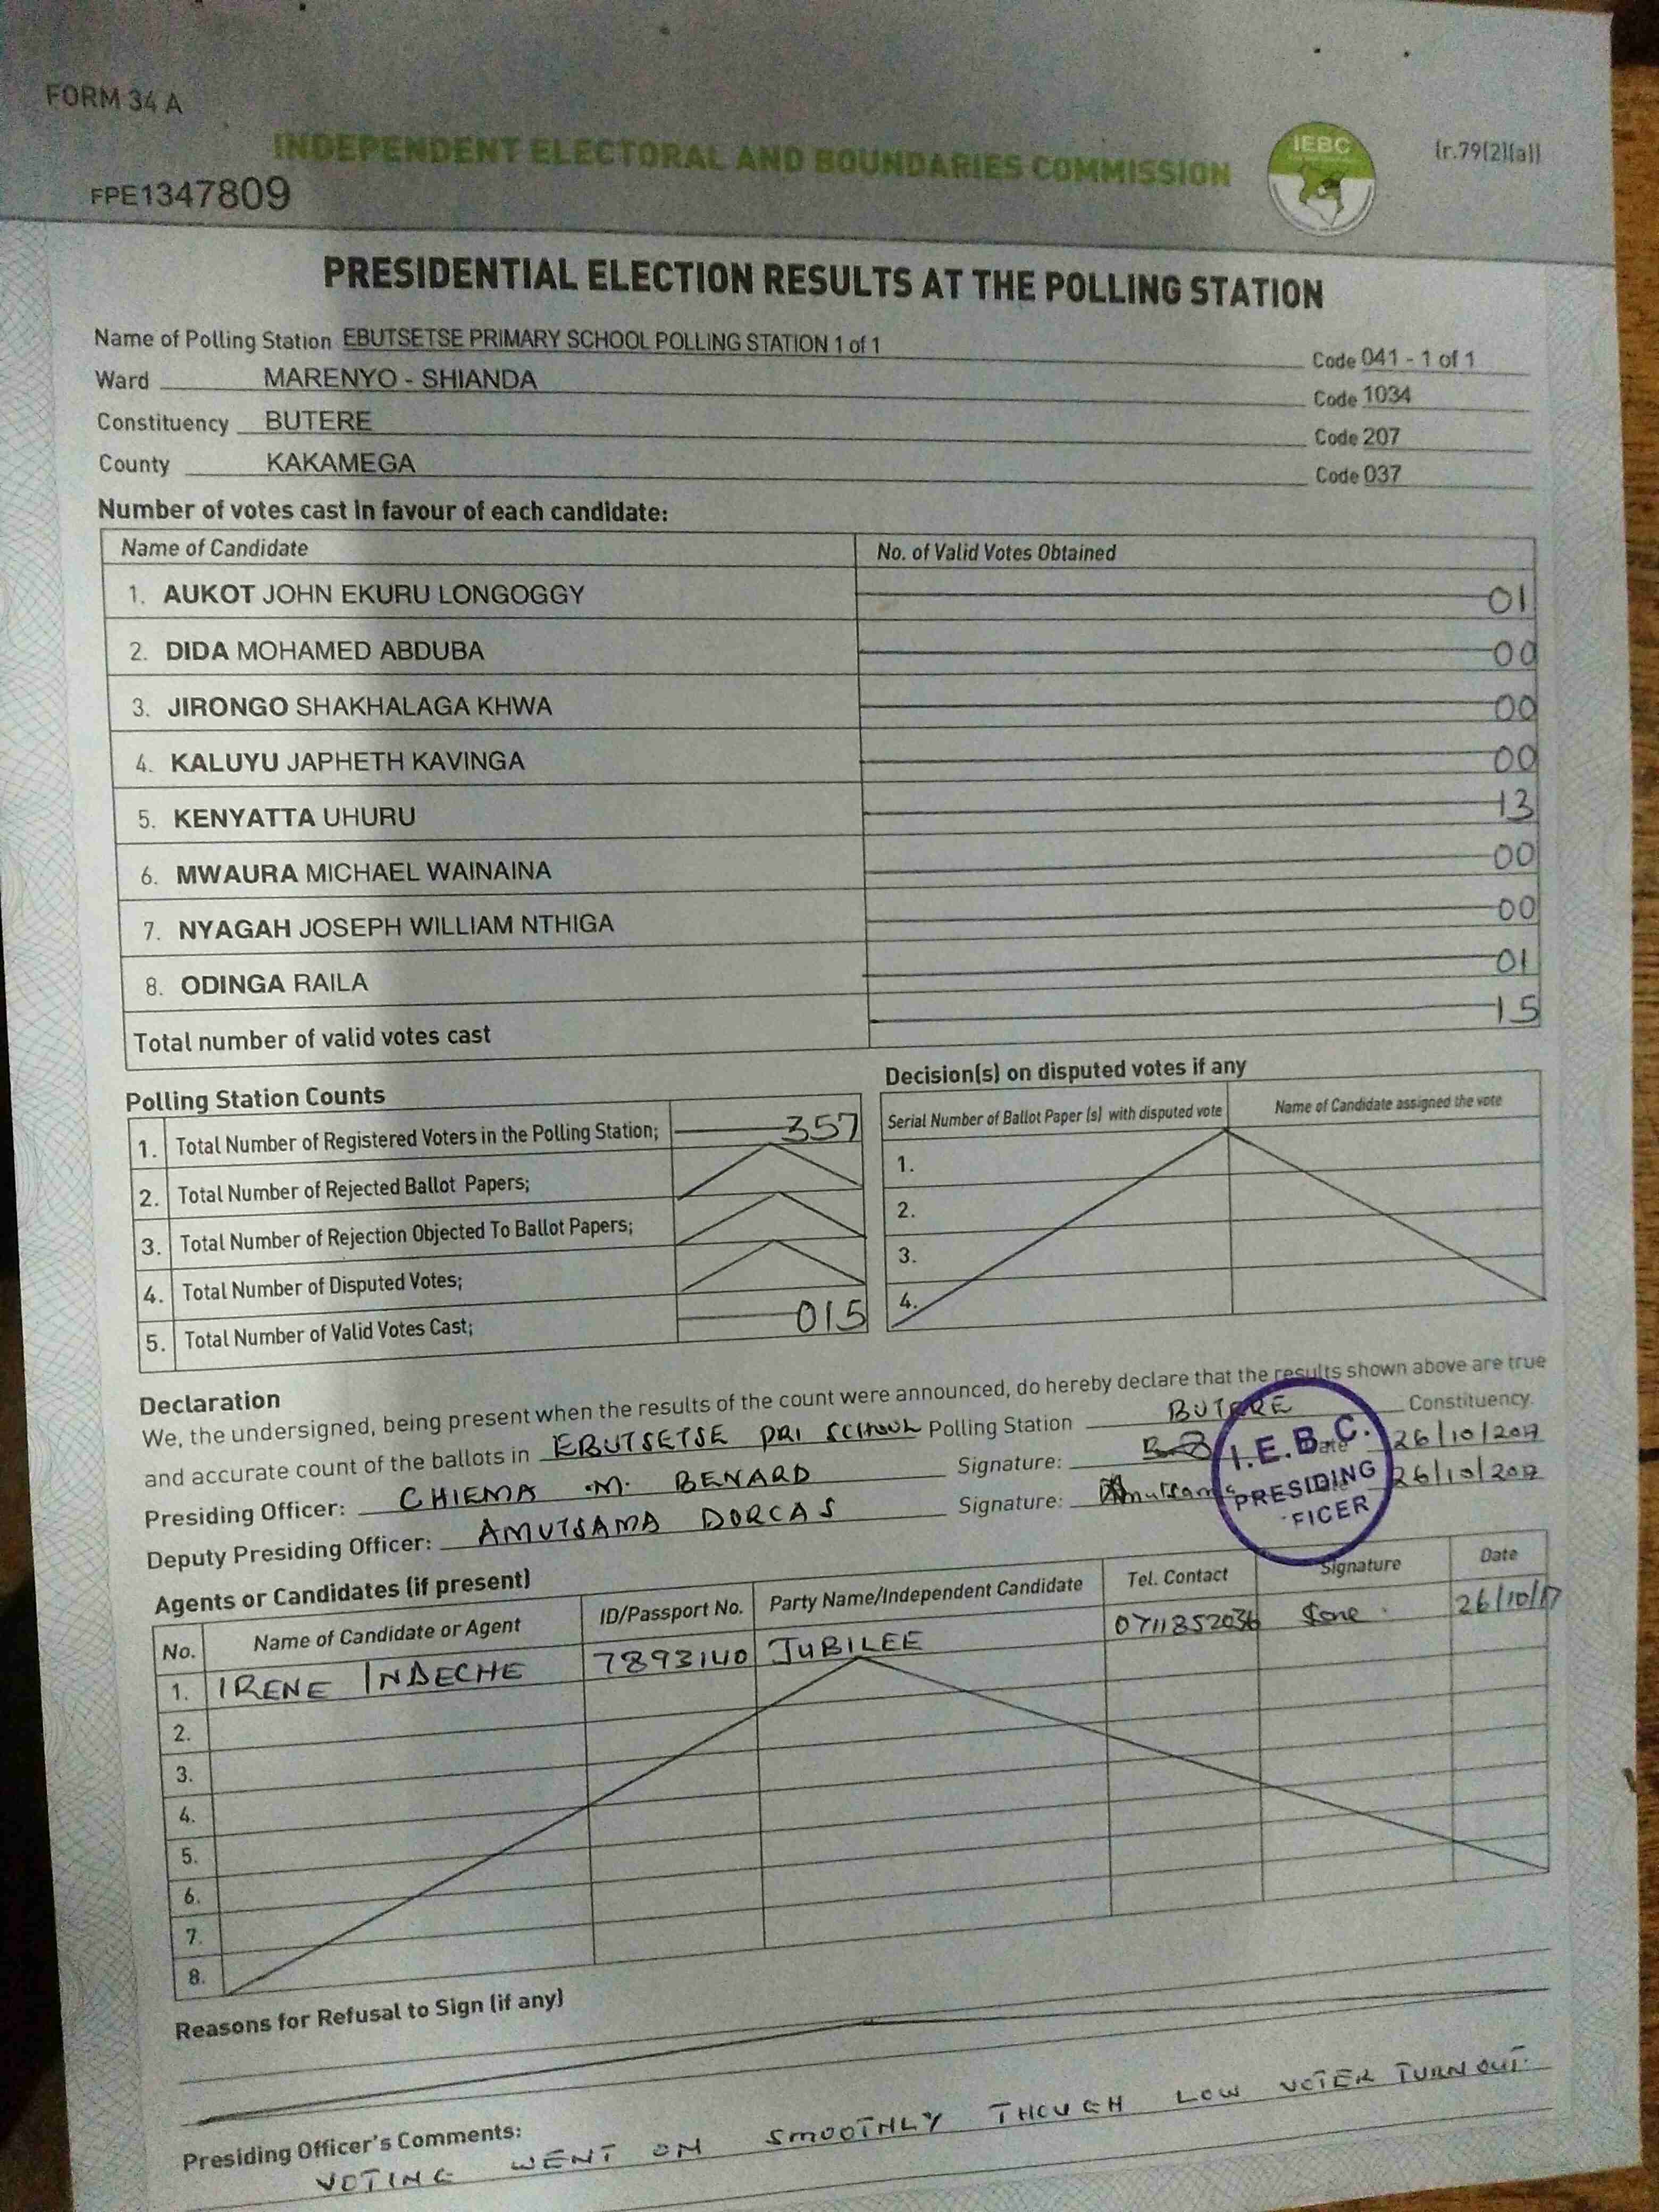 FORM 34 A
INDEPENDENT ELECTORAL AND BOUNDARIES COMMISSION
IEBC
(r.79(2)(a))
FPE1347809
PRESIDENTIAL ELECTION RESULTS AT THE POLLING STATION
Name of Polling Station EBUTSETSE PRIMARY SCHOOL POLLING STATION 1 of 1 Code 041 - 1 of 1
Ward MARENYO - SHIANDA Code 1034
Constituency BUTERE Code 207
County KAKAMEGA Code 037
Number of votes cast in favour of each candidate:
Name of Candidate No. of Valid Votes Obtained
1. AUKOT JOHN EKURU LONGOGGY 01
2. DIDA MOHAMED ABDUBA 00
3. JIRONGO SHAKHALAGA KHWA 00
4. KALUYU JAPHETH KAVINGA 00
5. KENYATTA UHURU 13
6. MWAURA MICHAEL WAINAINA 00
7. NYAGAH JOSEPH WILLIAM NTHIGA 00
8. ODINGA RAILA 01
Total number of valid votes cast 15
Polling Station Counts
1. Total Number of Registered Voters in the Polling Station; 357
2. Total Number of Rejected Ballot Papers;
3. Total Number of Rejection Objected To Ballot Papers;
4. Total Number of Disputed Votes;
5. Total Number of Valid Votes Cast; 015
Decision(s) on disputed votes if any
Serial Number of Ballot Paper (s) with disputed vote Name of Candidate assigned the vote
1.
2.
3.
4.
Declaration
We, the undersigned, being present when the results of the count were announced, do hereby declare that the results shown above are true
and accurate count of the ballots in EBUTSETSE PRI SCHOOL Polling Station BUTERE Constituency.
Presiding Officer: CHIEMA .M. BENARD Signature: Date 26/10/2017
Deputy Presiding Officer: AMUTSAMA DORCAS Signature: 26/10/2017
I.E.B.C.
PRESIDING
FICER
Agents or Candidates (if present)
No. Name of Candidate or Agent ID/Passport No. Party Name/Independent Candidate Tel. Contact Signature Date
1. IRENE INDECHE 7893140 JUBILEE 0711852036 26/10/17
2.
3.
4.
5.
6.
7.
8.
Reasons for Refusal to Sign (if any)
Presiding Officer's Comments:
VOTING WENT ON SMOOTHLY THOUGH LOW VOTER TURNOUT.